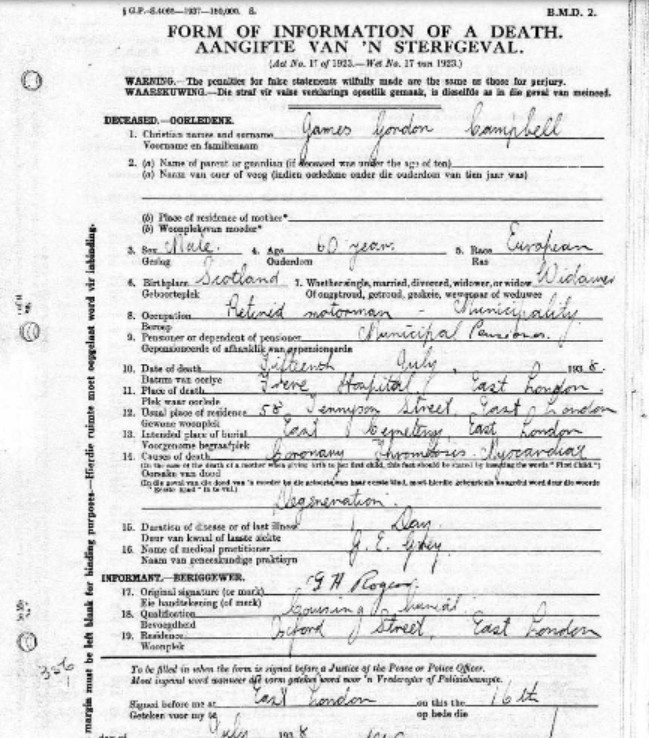 § G.P.-S.4066—1937—150,000. S. B.M.D. 2.
FORM OF INFORMATION OF A DEATH.
AANGIFTE VAN 'N STERFGEVAL.
(Act No. 17 of 1923.—Wet No. 17 van 1923.)
WARNING.—The penalties for false statements wilfully made are the same as those for perjury.
WAARSKUWING.—Die straf vir valse verklarings opsetlik gemaak, is dieselfde as in die geval van meineed.
DECEASED.—OORLEDENE.
1. Christian names and surname James Gordon Campbell
Voorname en familienaam
2. (a) Name of parent or guardian (if deceased was under the age of ten)
(a) Naam van ouer of voog (indien oorledene onder die ouderdom van tien jaar was)
(b) Place of residence of mother*
(b) Woonplek van moeder*
3. Sex Male. 4. Age 60 years. 5. Race European
Geslag Ouderdom Ras
6. Birthplace Scotland 7. Whether single, married, divorced, widower, or widow Widower
Geboorteplek Of ongetroud, getroud, geskeie, wewenaar of weduwee
8. Occupation Retired motorman - Municipality
Beroep
9. Pensioner or dependent of pensioner Municipal Pensioner.
Gepensioneerde of afhanklik van gepensioneerde
10. Date of death Fifteenth July, 1938.
Datum van oorlye
11. Place of death Frere Hospital, East London.
Plek waar oorlede
12. Usual place of residence 58 Tennyson Street, East London
Gewone woonplek
13. Intended place of burial East Cemetery, East London
Voorgenome begraafplek
14. Causes of death Coronary Thrombosis. Myocardial
(In the case of the death of a mother when giving birth to her first child, this fact should be stated by inserting the words "First Child.")
Oorsake van dood
(In die geval van die dood van 'n moeder by die geboorte van haar eerste kind, moet hierdie gebeurtenis aangedui word deur die woorde
"Eerste Kind" in te vul.)
Degeneration.
15. Duration of disease or of last illness 1 Day.
Duur van kwaal of laaste siekte
16. Name of medical practitioner G. E. Grey.
Naam van geneeskundige praktisyn
INFORMANT.—BERIGGEWER.
17. Original signature (or mark) G H Rogers.
Eie handtekening (of merk)
18. Qualification Causing burial.
Bevoegdheid
19. Residence Oxford Street, East London
Woonplek
To be filled in when the form is signed before a Justice of the Peace or Police Officer.
Moet ingevul word wanneer die vorm geteken word voor 'n Vrederegter of Polisiebeampte.
Signed before me at East London on this the 16th
Geteken voor my te op hede die
day of July 1938
margin must be left blank for binding purposes—Hierdie ruimte moet oopgelaat word vir inbinding.